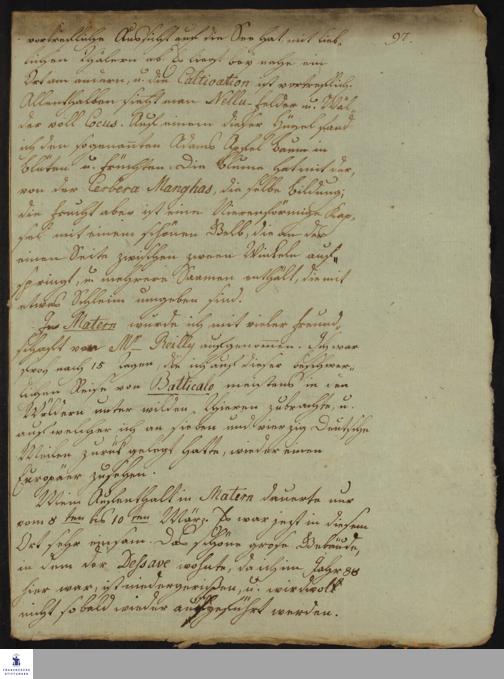 97.
vortreffliche Aussicht auf die See hat, mit lieb-
lichen Thälern ab. Es liegt bey nahe ein
Ort am andern, u. die Cultivation ist vortrefflich.
Allenthalben sieht man Nellu-Felder u. Wäl-
der voll Cocus. Auf einem dieser Hügel fand
ich den sogenannten Adams Apfel Baum in
Blüten u. Früchten. Die Blume hat mit der,
von der Cerbera Manghas, dieselbe Bildung;
die Frucht aber ist eine Nierenförmige Kap-
sel mit einem schönen Gelb, die an der
einen Seite zwischen zween Winkeln auf-
springt, u. mehrere Saamen enthält, die mit
etwas Schleim umgeben sind.
In Matern wurde ich mit vieler Freund-
schaft von Mr. Reilly aufgenommen. Ich war
froh nach 15 Tagen, die ich auf dieser beschwer-
lichen Reise von Batticalo meistens in den
Wäldern unter wilden Thieren zubrachte, u.
auf welcher ich an sieben und vierzig Deutsche
Meilen zurük gelegt hatte, wieder einen
Europäer zu sehen.
Mein Aufenthalt in Matern dauerte nur
vom 8ten bis 10ten März. Es war jezt in diesem
Ort sehr einsam. Das schöne große Gebäude,
in dem der Dessave wohnte, da ich im Jahr 88
hier war, ist niedergerissen, u. wird wol
nicht sobald wieder aufgeführt werden.
FRANCKESCHE
STIFTUNGEN